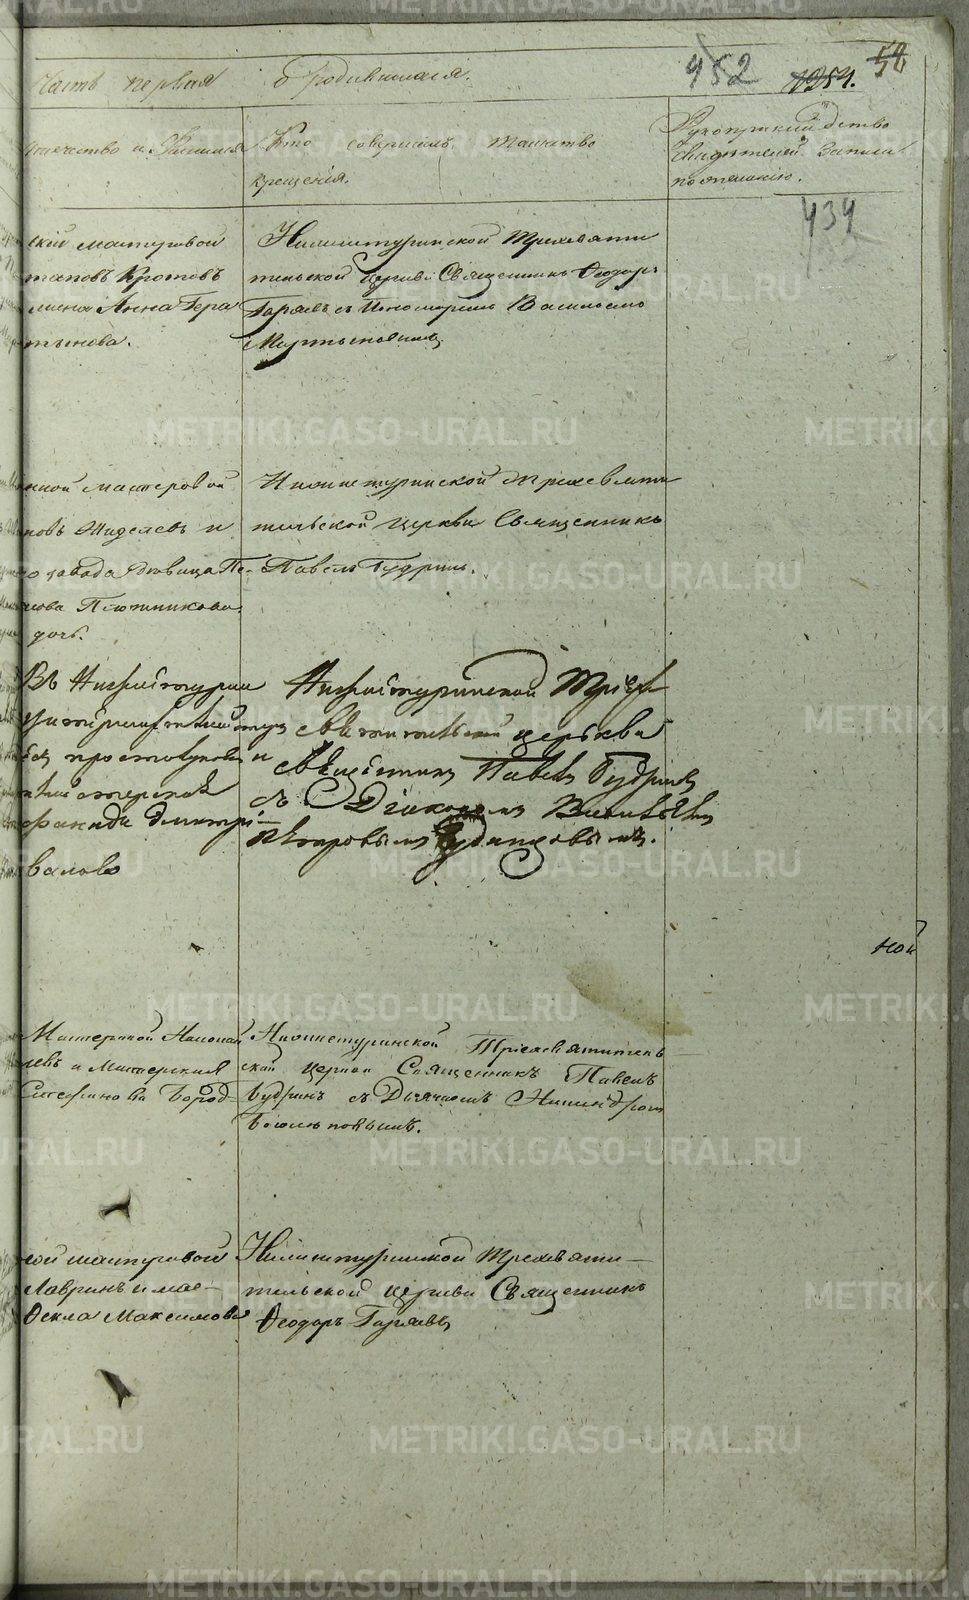 Часть первая о родившихся.
452 1254. 54
Отчество и Фамилия
Кто совершилъ таинство
крещенія.
Рукоприкладство
свидѣтелей записи
по желанію.
434
ской мастеровой
таповъ Кротовъ
Анна Гера
тьянова.
Нижнетуринской Трехсвяти
тельской церкви Священникъ Ѳеодоръ
Гаряевъ съ Пономаремъ Васильемъ
Мартыновымъ
нной мастеровой
новъ Жиделевъ и
завода вдовица Пе-
Плотникова
дочь.
Нижнетуринской Трехсвяти
тельской церкви Священникъ
Павелъ Будринъ.
Въ Нижнетурин
и
Дмитрі-
валова
Нижнетуринской Тріех
святительской церькви
священникъ Павелъ Будринъ
съ Діакономъ Васильемъ
Петровымъ
ной
Мастеровой
левъ и Мастерская
Стефанова Бород-
Нижнетуринской Тріехсвятитель
ской церкви Священникъ Павелъ
Будринъ съ Дьячкомъ Никандромъ
кой мастеровой
Лавринъ и мас-
Ѳекла Максимова
Нижнетуринской Трехсвяти-
тельской церкви Священникъ
Ѳеодоръ Гаряевъ
METRIKI.GASO-URAL.RU